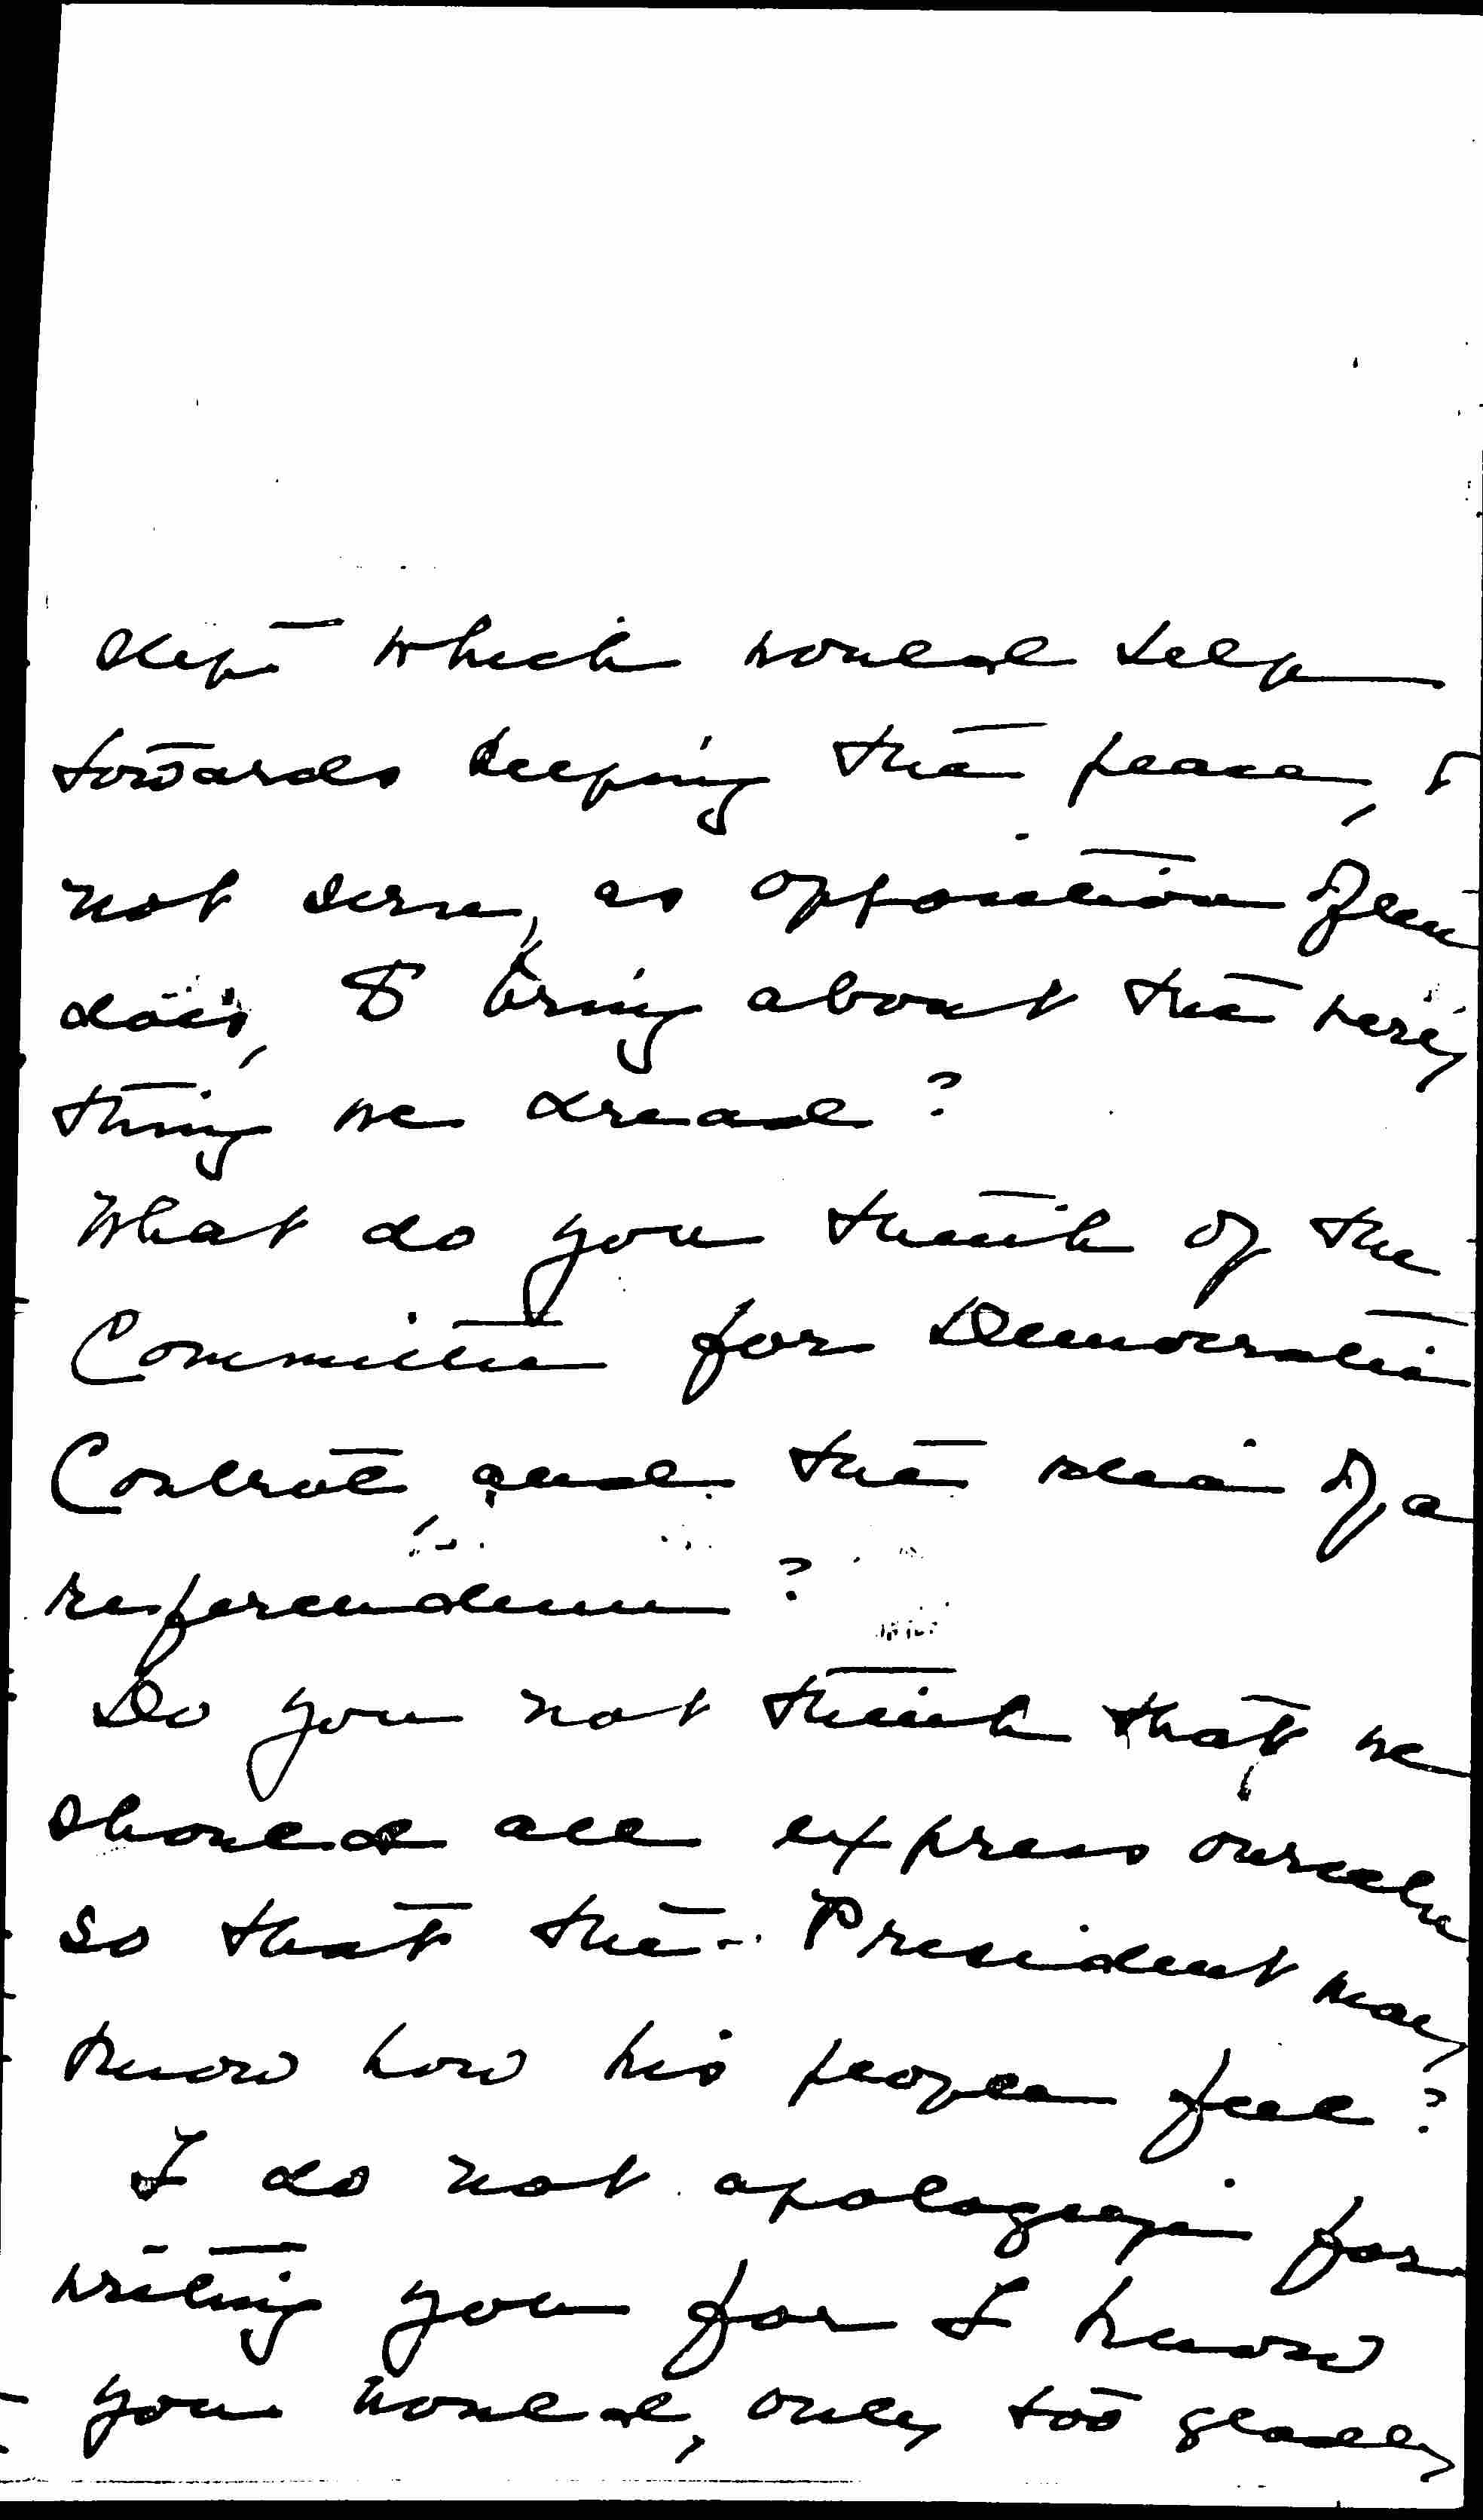 step which would help
towards keeping the peace, &
not serve, as opposition often
does, to bring about the very
thing we dread?
What do you think of the
Committee for Democratic
Control, and the idea of a
referendum?
Do you not think that we
should all express ourselves
so that the President may
know how his people feel?
I do not apologize for
writing you for I know
you would, only too gladly